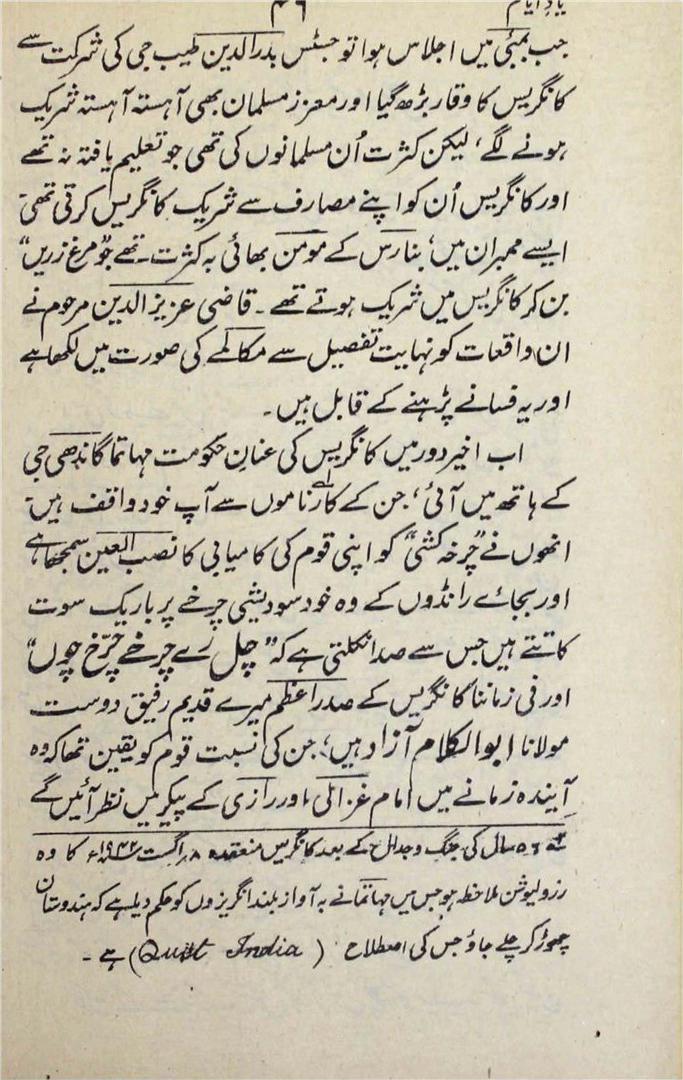 یادِ ایام ۴۶
جب بمبئی میں اجلاس ہوا تو جسٹس بدرالدین طیب جی کی شرکت سے
کانگریس کا وقار بڑھ گیا اور معزز مسلمان بھی آہستہ آہستہ شریک
ہونے لگے، لیکن کثرت اُن مسلمانوں کی تھی جو تعلیم یافتہ نہ تھے
اور کانگریس اُن کو اپنے مصارف سے شریک کانگریس کرتی تھی۔
ایسے ممبران میں، بنارس کے مومن بھائی بہ کثرت۔ تھے جو "مرغ زریں"
بن کر کانگریس میں شریک ہوتے تھے۔ قاضی عزیز الدین مرحوم نے
ان واقعات کو نہایت تفصیل سے مکالمے کی صورت میں لکھا ہے
اور یہ فسانے پڑہنے کے قابل ہیں۔
اب اخیر دور میں کانگریس کی عنانِ حکومت مہاتما گاندھی جی
کے ہاتھ میں آئی، جن کے کارناموں سے آپ خود واقف ہیں۔
انھوں نے "چرخہ کشی" کو اپنی قوم کی کامیابی کا نصب العین سمجھا ہے
اور بجائے رانڈوں کے وہ خود سودیشی چرخے پر باریک سوت
کاتتے ہیں جس سے صدا نکلتی ہے کہ "چل رے چرخے چرّخ چوں"
اور فی زماننا کانگریس کے صدر اعظم میرے قدیم رفیق دوست
مولانا ابوالکلام آزاد ہیں؛ جن کی نسبت قوم کو یقین تھا کہ وہ
آیندہ زمانے میں امام غزالی اور رازی کے پیکر میں نظر آئیں گے
۵۶ سال کی جنگ و جدال کے بعد کانگریس منعقدہ ۸؍ اگست ۱۹۴۲ء کا وہ
رزولیوشن ملاحظہ ہو جس میں مہاتما نے بہ آواز بلند انگریزوں کو حکم دیا ہے کہ ہندوستان
چھوڑ کر چلے جاؤ جس کی اصطلاح (Quit India) ہے۔